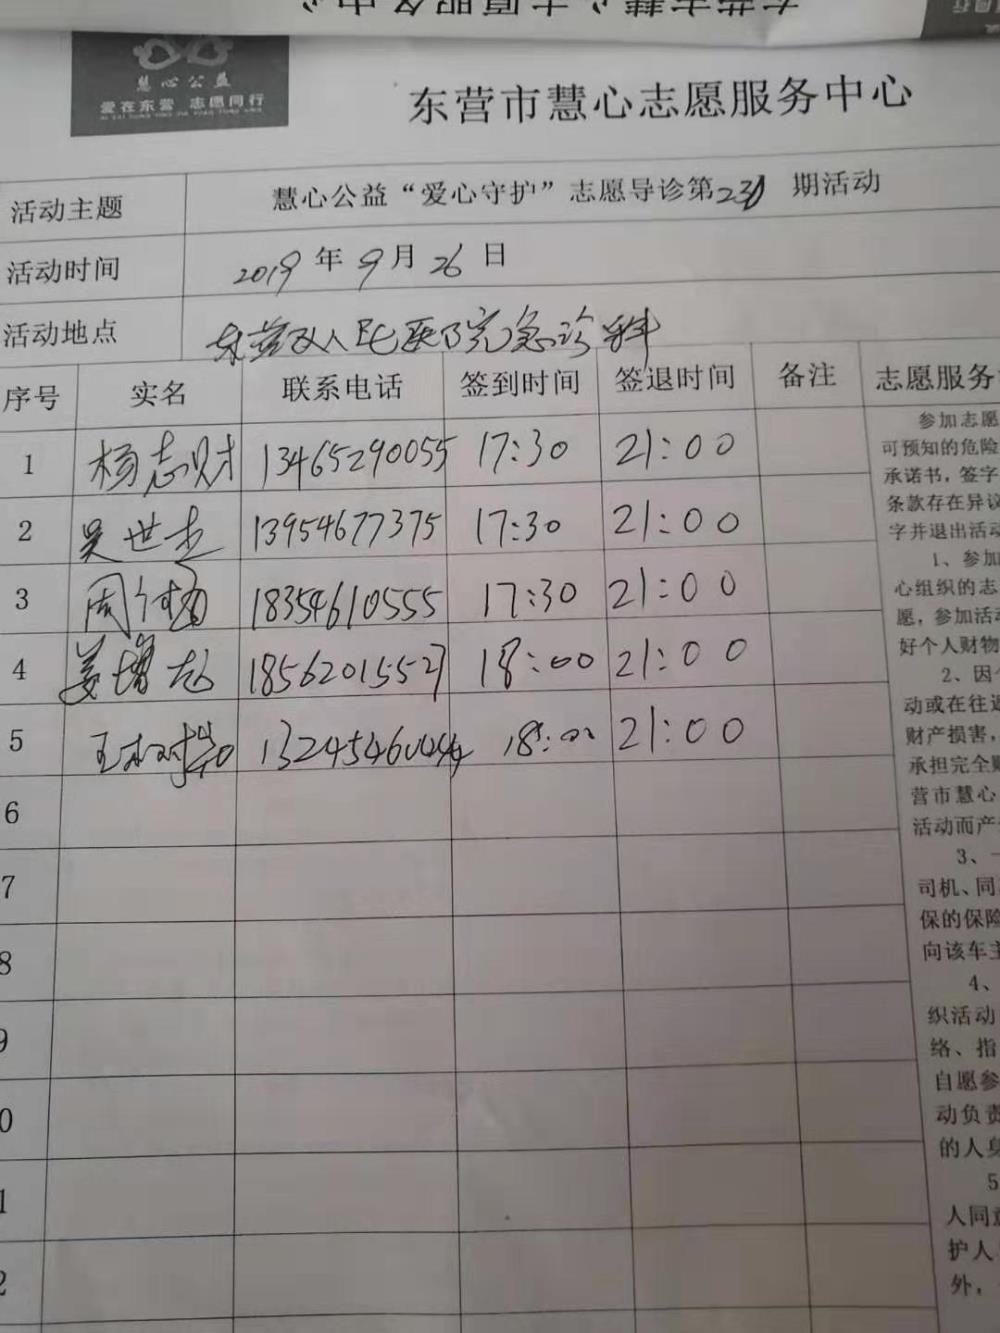 慧心公益
爱在东营 志愿同行
东营市慧心志愿服务中心
活动主题 慧心公益“爱心守护”志愿导诊第 期活动
活动时间 2019年9月26日
活动地点 人民医院急诊科
序号 实名 联系电话 签到时间 签退时间 备注 志愿服务
1 杨志财 13465290055 17:30 21:00
2 吴世杰 13954677375 17:30 21:00
3 周 18354610555 17:30 21:00
4 姜增志 18562015527 18:00 21:00
5 王树 18:00 21:00
6
7
8
9
0
1
2
参加志愿
可预知的危险
承诺书，签字
条款存在异议
字并退出活动
1、参加
心组织的志
愿，参加活动
好个人财物
2、因个
动或在往返
财产损害，
承担完全
营市慧心
活动而产
3、
司机、同
保的保险
向该车主
4、
织活动
络、指
自愿参
动负责
的人身
5
人同意
护人
外，